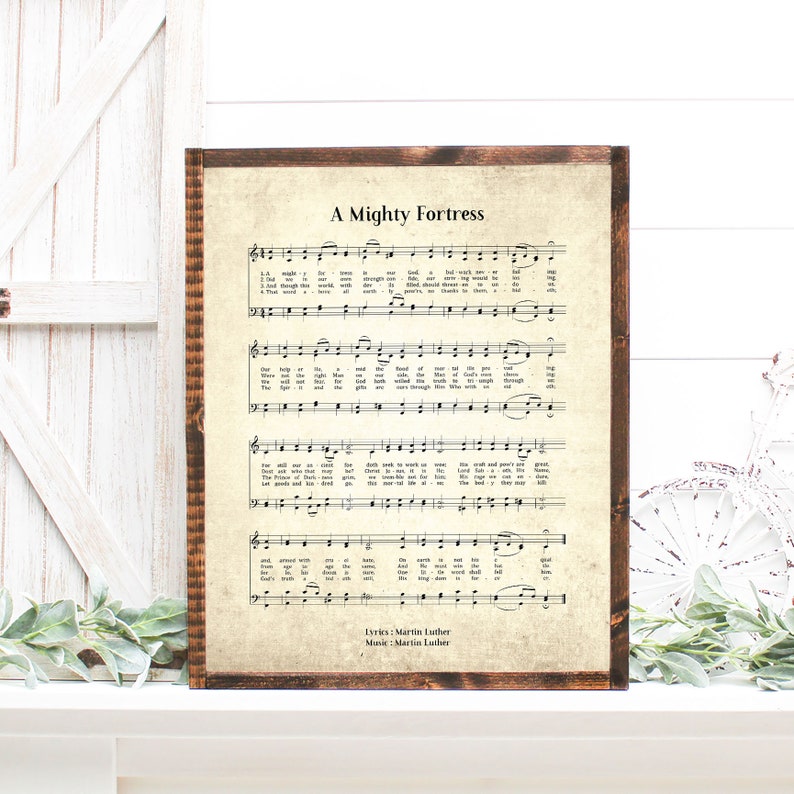 A Mighty Fortress
1. A might - y for - tress is our God, a bulwark nev - er fail - ing;
2. Did we in our own strength con - fide, our striving would be los - ing.
3. And though this world, with dev - ils filled, should threat - en to un - do us.
4. That word a - bove all earth - ly pow'rs, no thanks to them, a - bid - eth;
Our help - er He, a - mid the flood of mor - tal ills pre - vail ing:
Were not the right Man on our side, the Man of God's own choos - ing:
We will not fear, for God hath willed His truth to tri - umph through us:
The Spir - it and the gifts are ours through Him Who with us sid eth;
For still our an - cient foe doth seek to work us woe; His craft and pow'r are great,
Dost ask who that may be? Christ Je - sus, it is He; Lord Sab - a - oth, His Name,
The Prince of Dark - ness grim, we trem - ble not for him; His rage we can en - dure,
Let goods and kin - dred go, this mor - tal life al - so; The bod - y they may kill:
and, armed with cru - el hate, On earth is not his e qual.
from age to age the same, And He must win the bat tle.
for lo, his doom is sure, One lit - tle word shall fell him.
God's truth a - bid - eth still, His king - dom is for - ev er.
Lyrics : Martin Luther
Music : Martin Luther